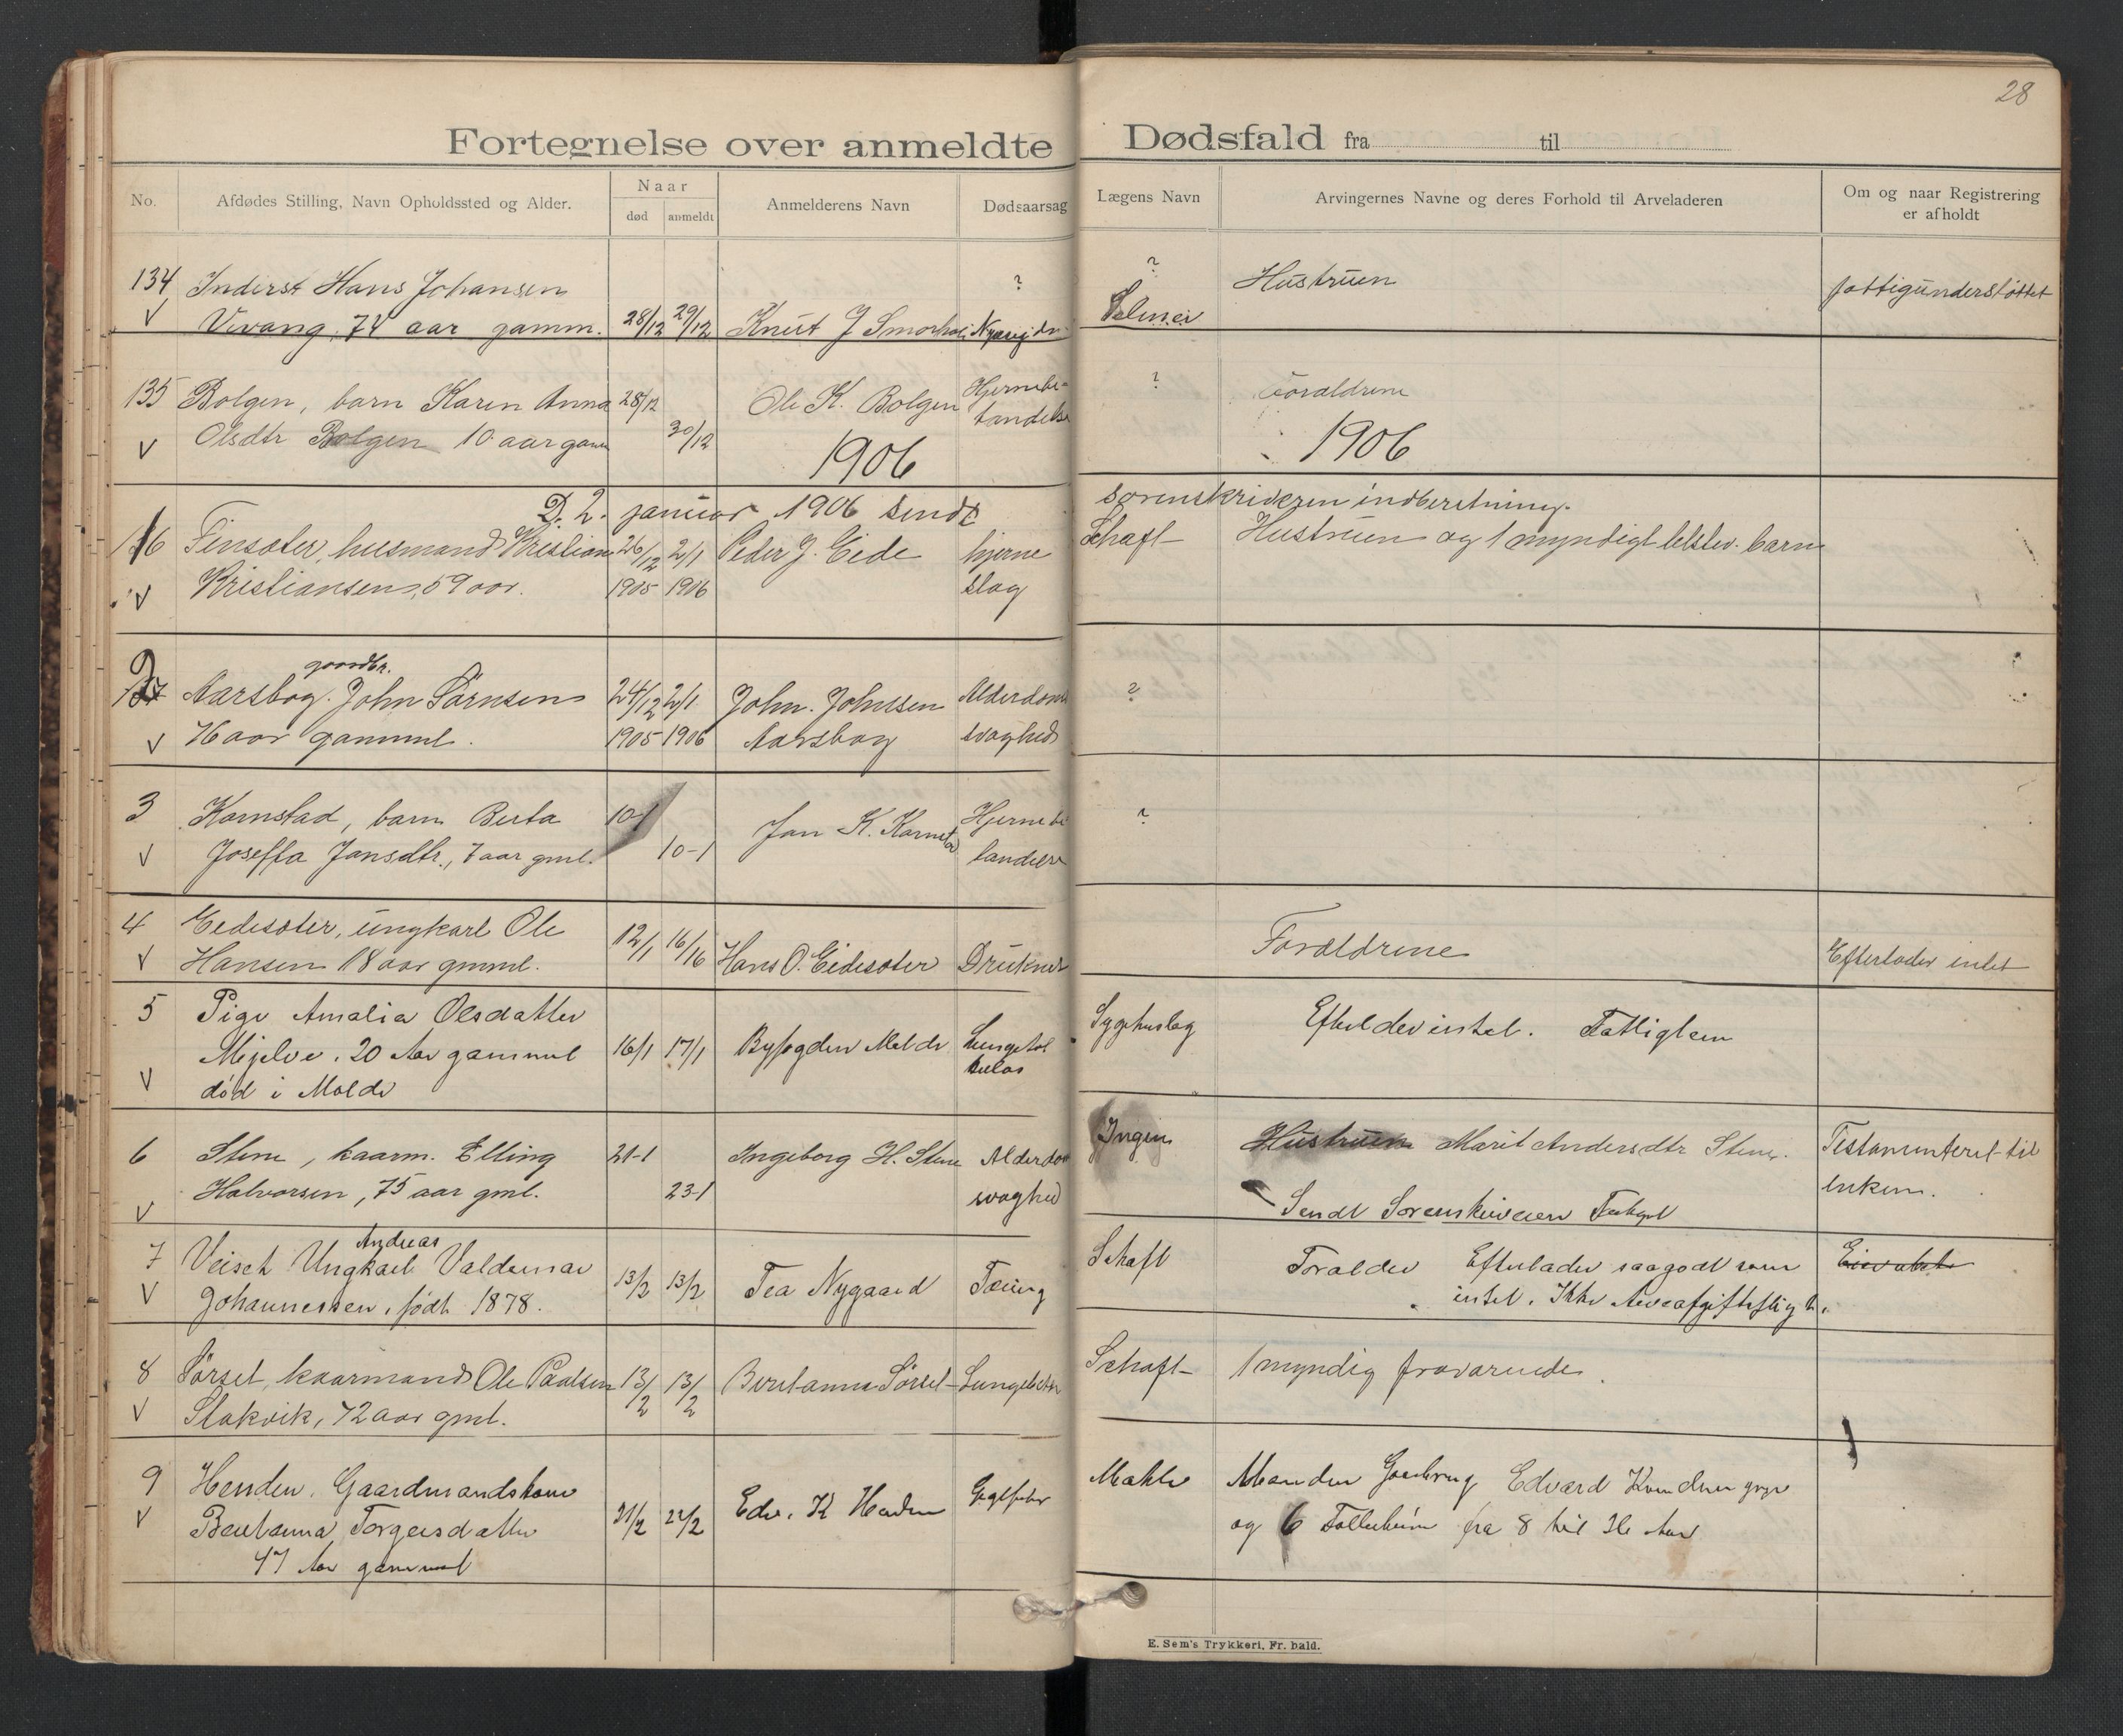 28
Fortegnelse over anmeldte Dødsfald fra til
No.
Afdødes Stilling, Navn Opholdssted og Alder.
Naar
død
anmeldt
Anmelderens Navn
Dødsaarsag
Lægens Navn
Arvingernes Navne og deres Forhold til Arveladeren
Om og naar Registrering
er afholdt
134 Inderst Hans Johansen ? ? Hustruen fattigunderstøttet
V 74 aar gamm. 28/12 29/12 Knut J
135 Bolgen, barn Karen Anna 28/12 Ole K. Bolgen Hjernebe= ? Forældrene
V Olsdtr Bolgen 10 aar gam 30/12 tændelse
1906 1906
D. 2. januar 1906 sendt sorenskriveren indberetning.
Finsæter, husmand Kristian 26/12 2/1 Peder J. Eide hjerne Schaft Hustruen og 1 myndigt barn
V Kristiansen, 59 aar. 1905 1906 slag
gaardbr.
2 Aarsbog. John Sørnsen 24/12 2/1 John. Johnsen Alderdoms ?
V aar gammel. 1905 1906 Aarsbog svaghed
3 Kornstad, barn Berta 10-1 Jan K. Hjernebe ?
V Joseffa Jansdtr., 7 aar gml. 10-1
4 Eidesæter, ungkarl Ole 12/1 16/16 Forældrene
V Hansen 18 aar gmml. Hans O. Eidesæter Druknet Efterlader intet
5 Pige Amalia Olsdatter Sygehuslæg intet. Fattiglem
Mjelve. 20 Aar gammel 16/1 17/1 Byfogden Molde
V død i Molde
6 Stene, kaarm. Elling 21-1 Ingeborg H. Stene Alderdom Ingen Hustruen Marit Andersdtr Stene. Testamenteret til
V Halvorsen, 75 aar gml. 23-1 svaghed enken.
Sendt Sorenskriveren
Andreas
7 Ungkarl Valdemar 13/2 13/2 Tea Nygaard Tæring Schaft Forælder Efterlader saagodt som
V Johannessen, født 1878. intet. Ikke Arveafgiftspligt.
8 Sørset, kaarmand Ole Paalsen 13/2 13/2 Beretanna Sørset Schaft 1 myndig fraværende.
V Stakvik, 72 aar gml.
9 Henden. Gaardmandskone Edv. K Henden Manden Edvard
V Beretanna Torgersdatter 21/2 22/2 og 6 fra 8 til Aar
47 Aar gammel
E. Sem's Trykkeri, Fr. hald.